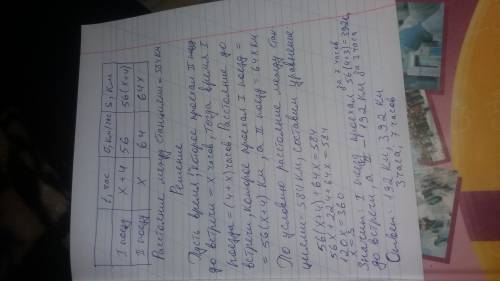 t, час v, км/ч S, км
I поезд x+4 56 56(x+4)
II поезд x 64 64x
Расстояние между станциями = 584 км
Решение
Пусть время, которое проехал II поезд
до встречи = x часов, тогда время I
поезда = (4+x) часов. Расстояние до
встречи, которое проехал I поезд =
= 56(x+4) км, а II поезд = 64x км
По условию расстояние между стан-
циями = 584 км, составим уравнение:
56(x+4)+64x=584
56x+224+64x=584
120x=360
x=3
Значит I поезд проехал 56(4+3)=392км за 7 часов
до встречи, а II – 192 км за 3 часа
Ответ: 192 км, 392 км
3 часа, 7 часов